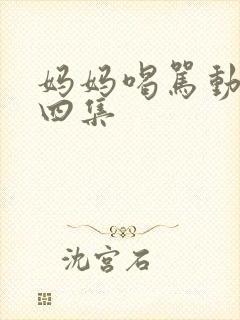 妈妈喝骂動
四集
沈宫石